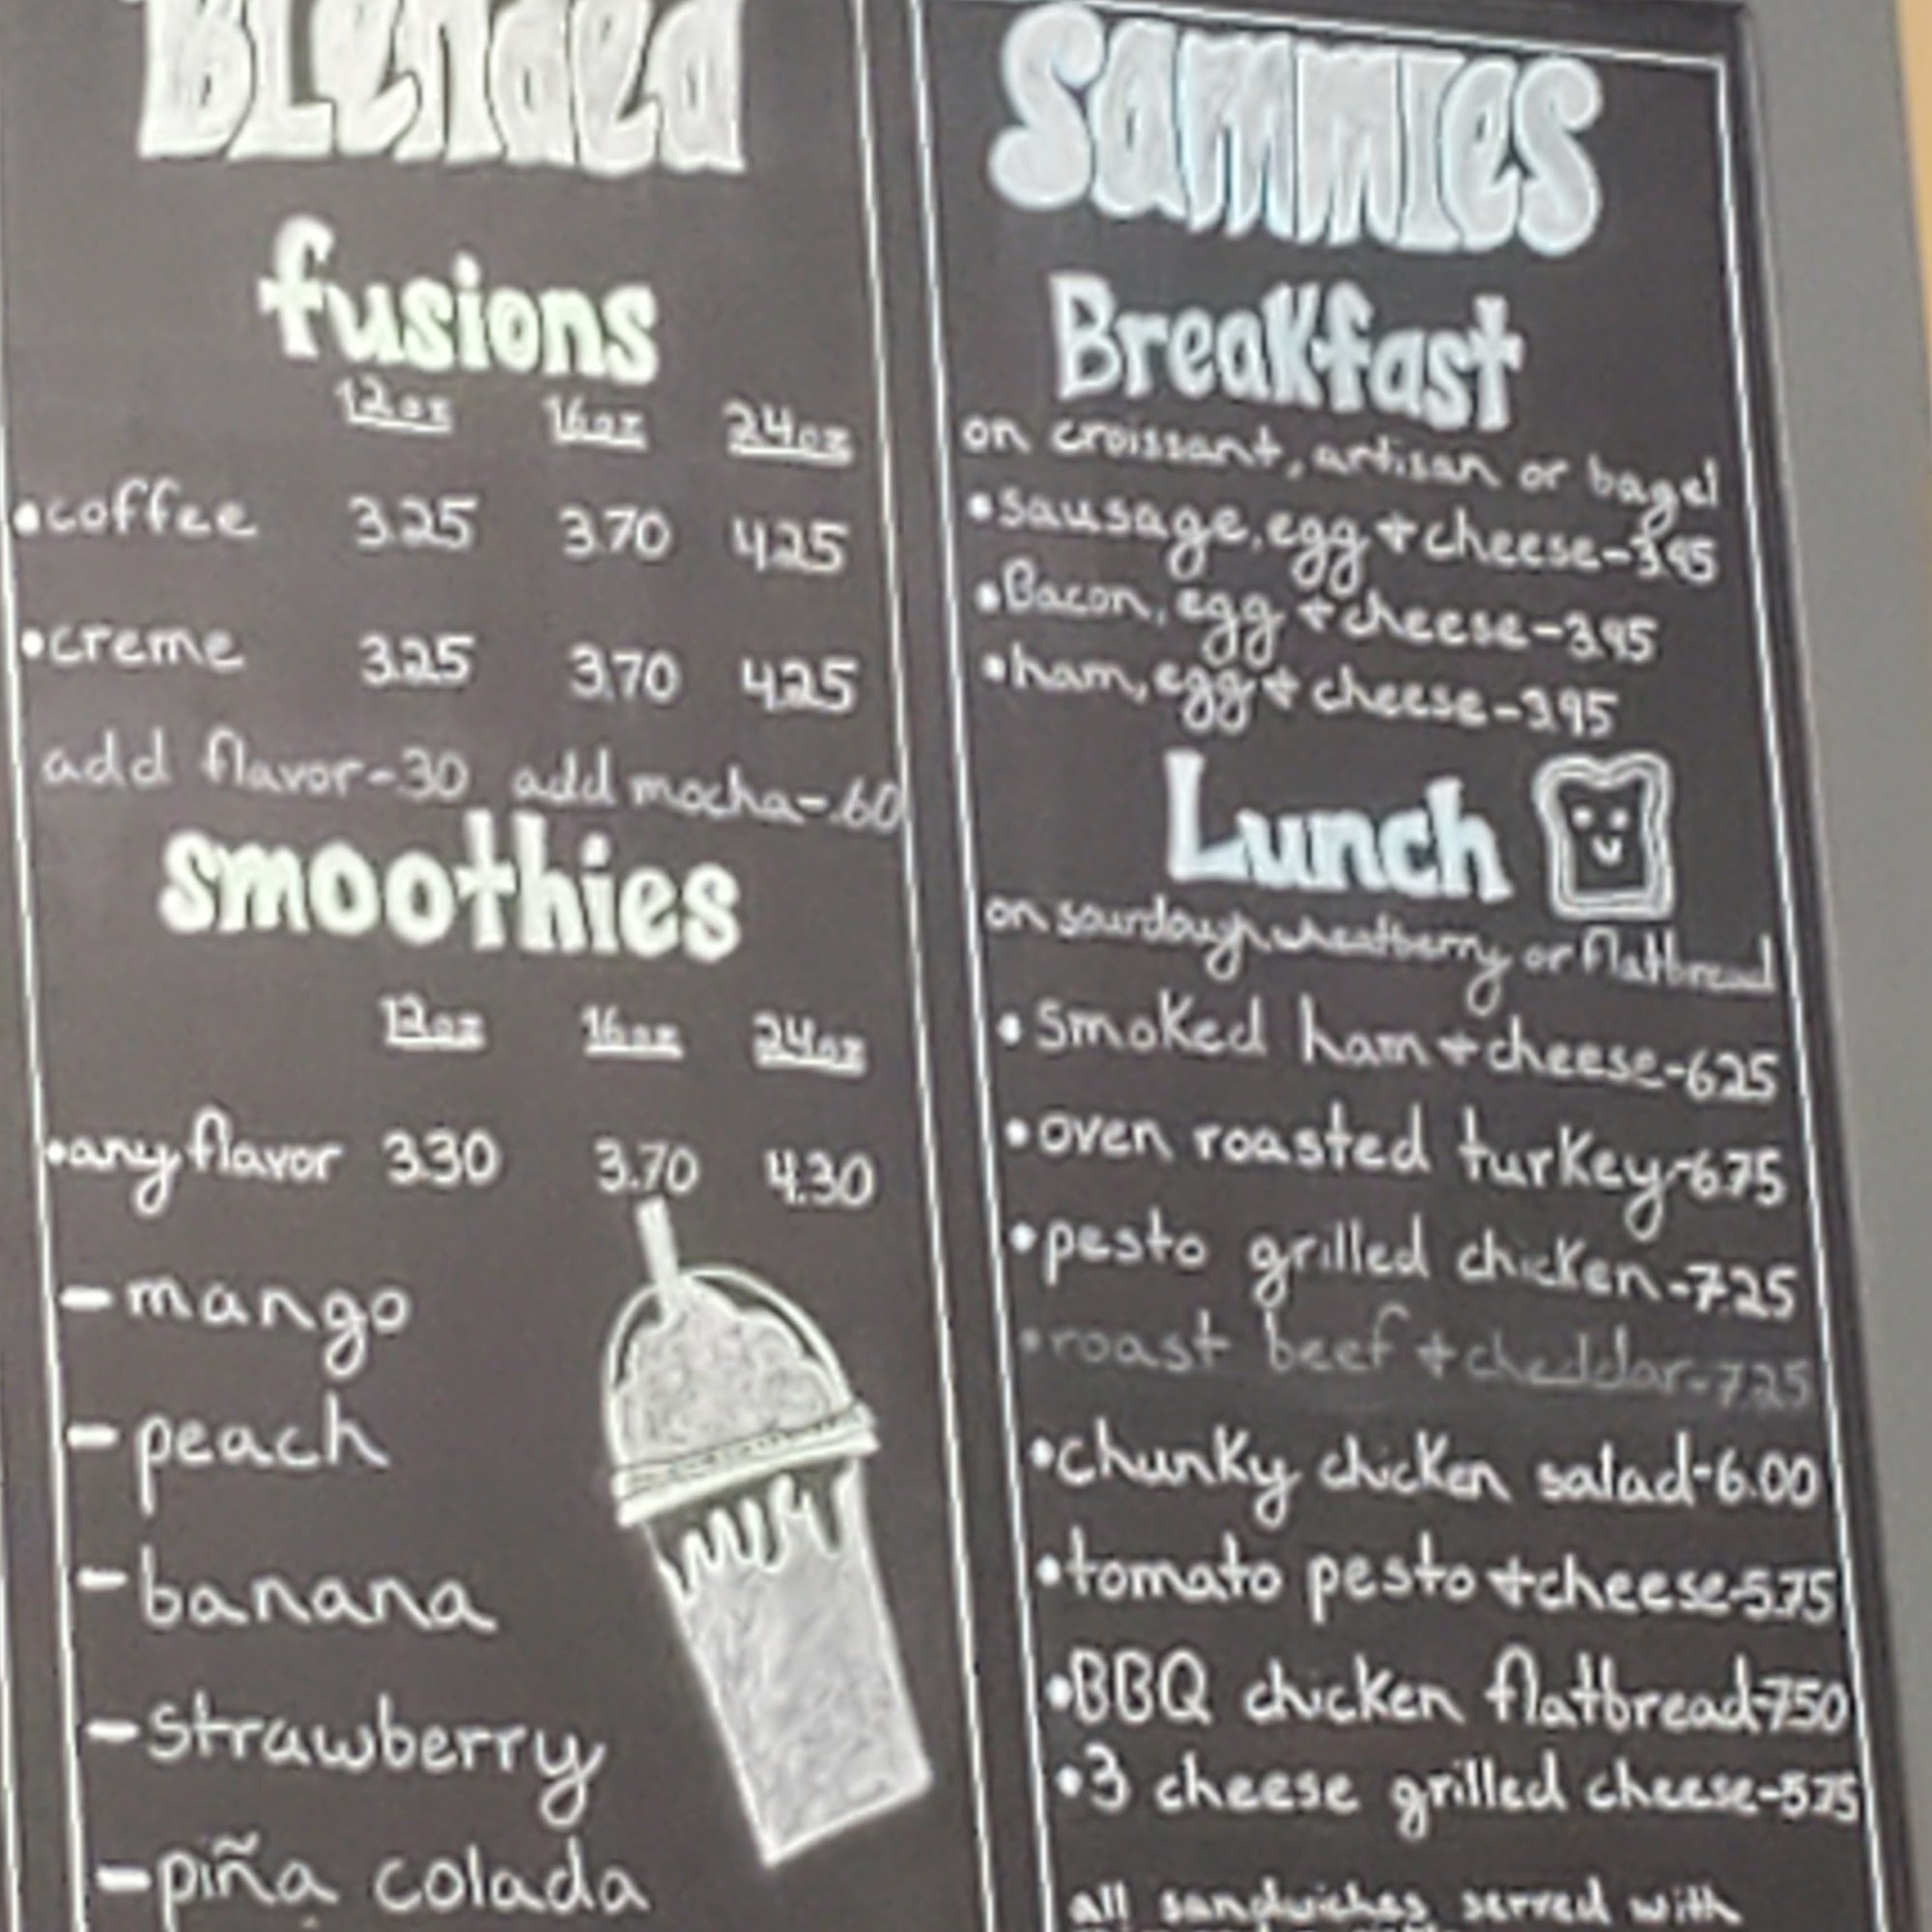 Blended
fusions
12oz 16oz 24oz
•coffee 3.25 3.70 4.25
•creme 3.25 3.70 4.25
add flavor-.30 add mocha-.60
smoothies
12oz 16oz 24oz
•any flavor 3.30 3.70 4.30
-mango
-peach
-banana
-strawberry
-piña colada
Sammies
Breakfast
on croissant, artisan or bagel
•sausage, egg + cheese-3.95
•Bacon, egg + cheese-3.95
•ham, egg + cheese-3.95
Lunch
on sourdough, wheatberry or flatbread
•smoked ham + cheese-6.25
•oven roasted turkey-6.75
•pesto grilled chicken-7.25
•roast beef + cheddar-7.25
•chunky chicken salad-6.00
•tomato pesto + cheese-5.75
•BBQ chicken flatbread-7.50
•3 cheese grilled cheese-5.75
all sandwiches served with